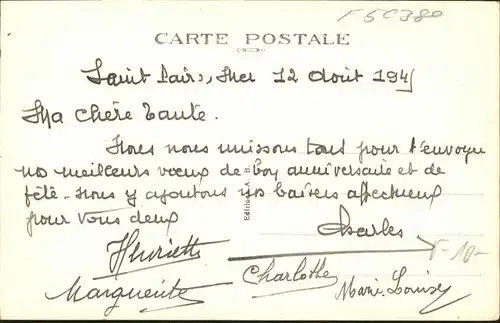 F50380
CARTE POSTALE
Saint Pair s/Mer 12 Août 194
Ma chère Tante.
Nous nous unissons tous pour t'envoyer
nos meilleurs vœux de bon anniversaire et de
fête - Nous y ajoutons nos baisers affectueux
pour vous deux
Charles
Henriette
Charlotte
Marguerite
Marie Louise
-10-